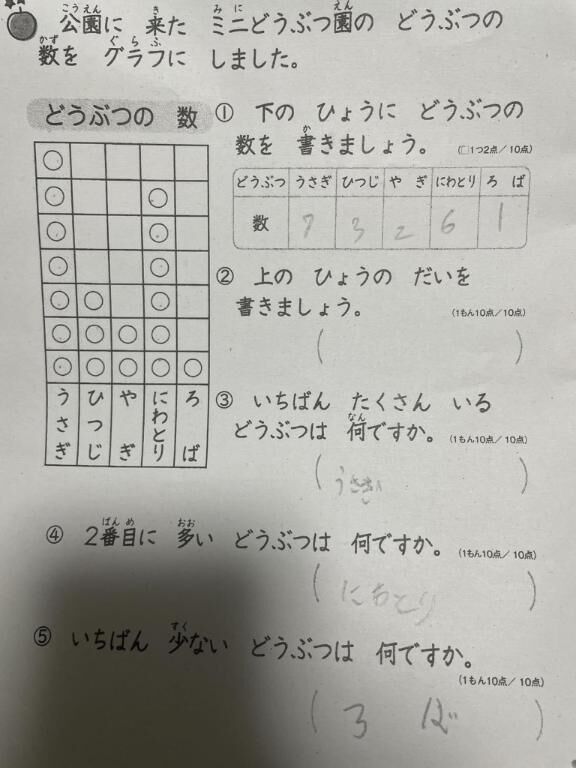 公園に 来た ミニどうぶつ園の どうぶつの
数を グラフに しました。
どうぶつの 数
うさぎ
ひつじ
やぎ
にわとり
ろば
① 下の ひょうに どうぶつの
数を 書きましょう。
(□1つ2点/10点)
どうぶつ うさぎ ひつじ やぎ にわとり ろば
数 7 3 2 6 1
② 上の ひょうの だいを
書きましょう。
(1もん10点/10点)
( )
③ いちばん たくさん いる
どうぶつは 何ですか。
(1もん10点/10点)
(うさぎ)
④ 2番目に 多い どうぶつは 何ですか。
(1もん10点/10点)
(にわとり)
⑤ いちばん 少ない どうぶつは 何ですか。
(1もん10点/10点)
(ろば)